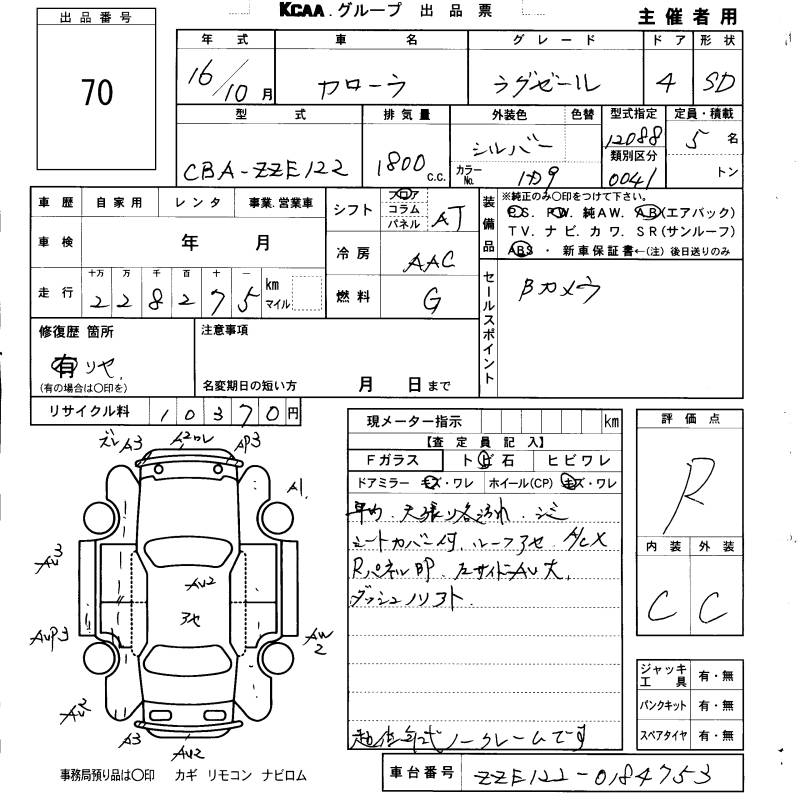 KCAA.グループ 出品票
主催者用
出品番号
70
年式 車名 グレード ドア 形状
16/10月 カローラ ラグゼール 4 SD
型式 排気量 外装色 色替 型式指定 定員・積載
CBA-ZZE122 1800 c.c. シルバー 12088 5名
カラーNo. 1F9 類別区分 0041 トン
車歴 自家用 レンタ 事業.営業車
シフト フロア コラム パネル AT
装備品 ※純正のみ○印をつけて下さい。
P.S. P.W. 純AW. AB(エアバック)
TV. ナビ. カワ. SR(サンルーフ)
ABS ・ 新車保証書←(注)後日送りのみ
車検 年 月
冷房 AAC
走行 十万 万 千 百 十 一 km マイル
228275
燃料 G
セールスポイント
Bカメラ
修復歴 箇所
有 リヤ
(有の場合は○印を)
注意事項
名変期日の短い方 月 日まで
リサイクル料 10370円
現メーター指示 km
【査定員記入】
Fガラス トビ石 ヒビワレ
ドアミラー キズ・ワレ ホイール(CP) キズ・ワレ
天張り 汚れ シミ
シートカバー付 ルーフ A/C X
Rパネル 左サイドAU大
ダッシュ ソフト
ノークレームです
評価点
R
内装 外装
C C
ズレ A3
AP3
A1
AU3
AU2
アセ
AUP3
AW2
AU2
A3
AU2
ジャッキ工具 有・無
パンクキット 有・無
スペアタイヤ 有・無
事務局預り品は○印 カギ リモコン ナビロム
車台番号 ZZE122-0184753